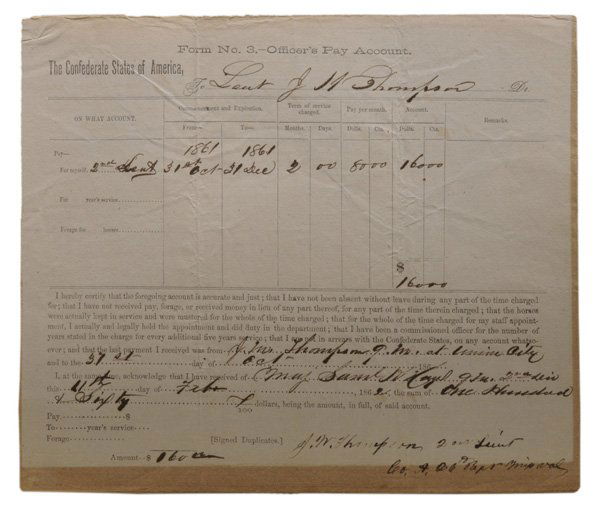 Form No. 3.—Officer's Pay Account.
The Confederate States of America,
To Lieut J W Thompson Dr.
ON WHAT ACCOUNT. Commencement and Expiration. Term of service charged. Pay per month. Account. Remarks.
From— To— Months. Days. Dolls. Cts. Dolls. Cts.
1861 1861
Pay—
For myself, 2nd Lieut 31st Oct 31 Dec 2 00 80 00 160 00
For year's service:
Forage for horses:
$
160 00
I hereby certify that the foregoing account is accurate and just; that I have not been absent without leave during any part of the time charged
for; that I have not received pay, forage, or received money in lieu of any part thereof, for any part of the time therein charged; that the horses
were actually kept in service and were mustered for the whole of the time charged; that for the whole of the time charged for my staff appoint-
ment, I actually and legally held the appointment and did duty in the department; that I have been a commissioned officer for the number of
years stated in the charge for every additional five years service; that I am not in arrears with the Confederate States, on any account whatso-
ever; and that the last payment I received was from Thompson Q. M. at Union City
and to the 31st day of Oct 186
I, at the same time, acknowledge that I have received of Maj Saml
this 4th day of Feb 1862, the sum of One Hundred
& Sixty 100 dollars, being the amount, in full, of said account.
Pay $
To year's service:
Forage
[Signed Duplicates.] J W Thompson 2nd Lieut
Amount—$ 160 00 Co. A.